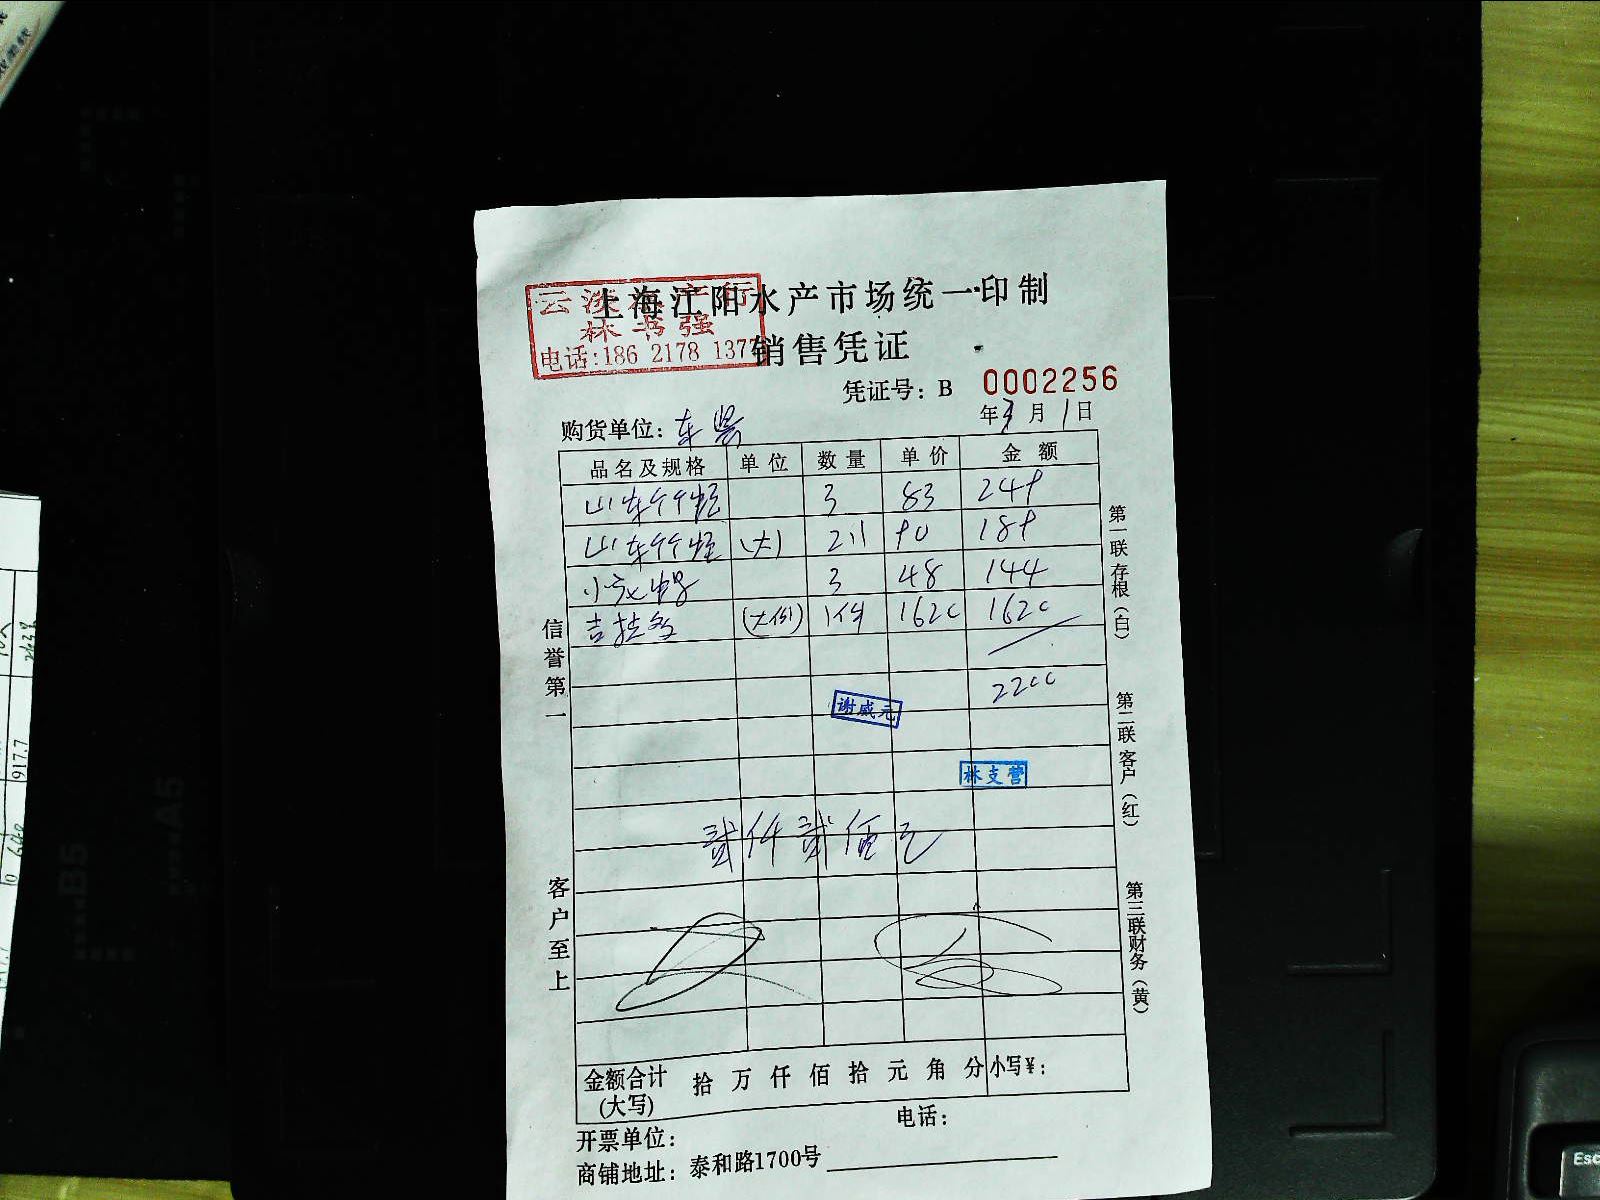 上海江阳水产市场统一印制
林书强
电话:186 2178 1377
销售凭证
凭证号: B 0002256
年3月1日
购货单位:
品名及规格 单位 数量 单价 金额
山东竹蛏 3 83 249
山东竹蛏 (大) 211 90 189
小 3 48 144
吉拉多 1件 1620 1620
2200
谢威元
林支营
贰仟贰佰元
金额合计(大写) 拾 万 仟 佰 拾 元 角 分 小写¥:
电话:
开票单位:
商铺地址: 泰和路1700号
信誉第一
客户至上
第一联存根(白)
第二联客户(红)
第三联财务(黄)
917.7
B5
A5
Esc